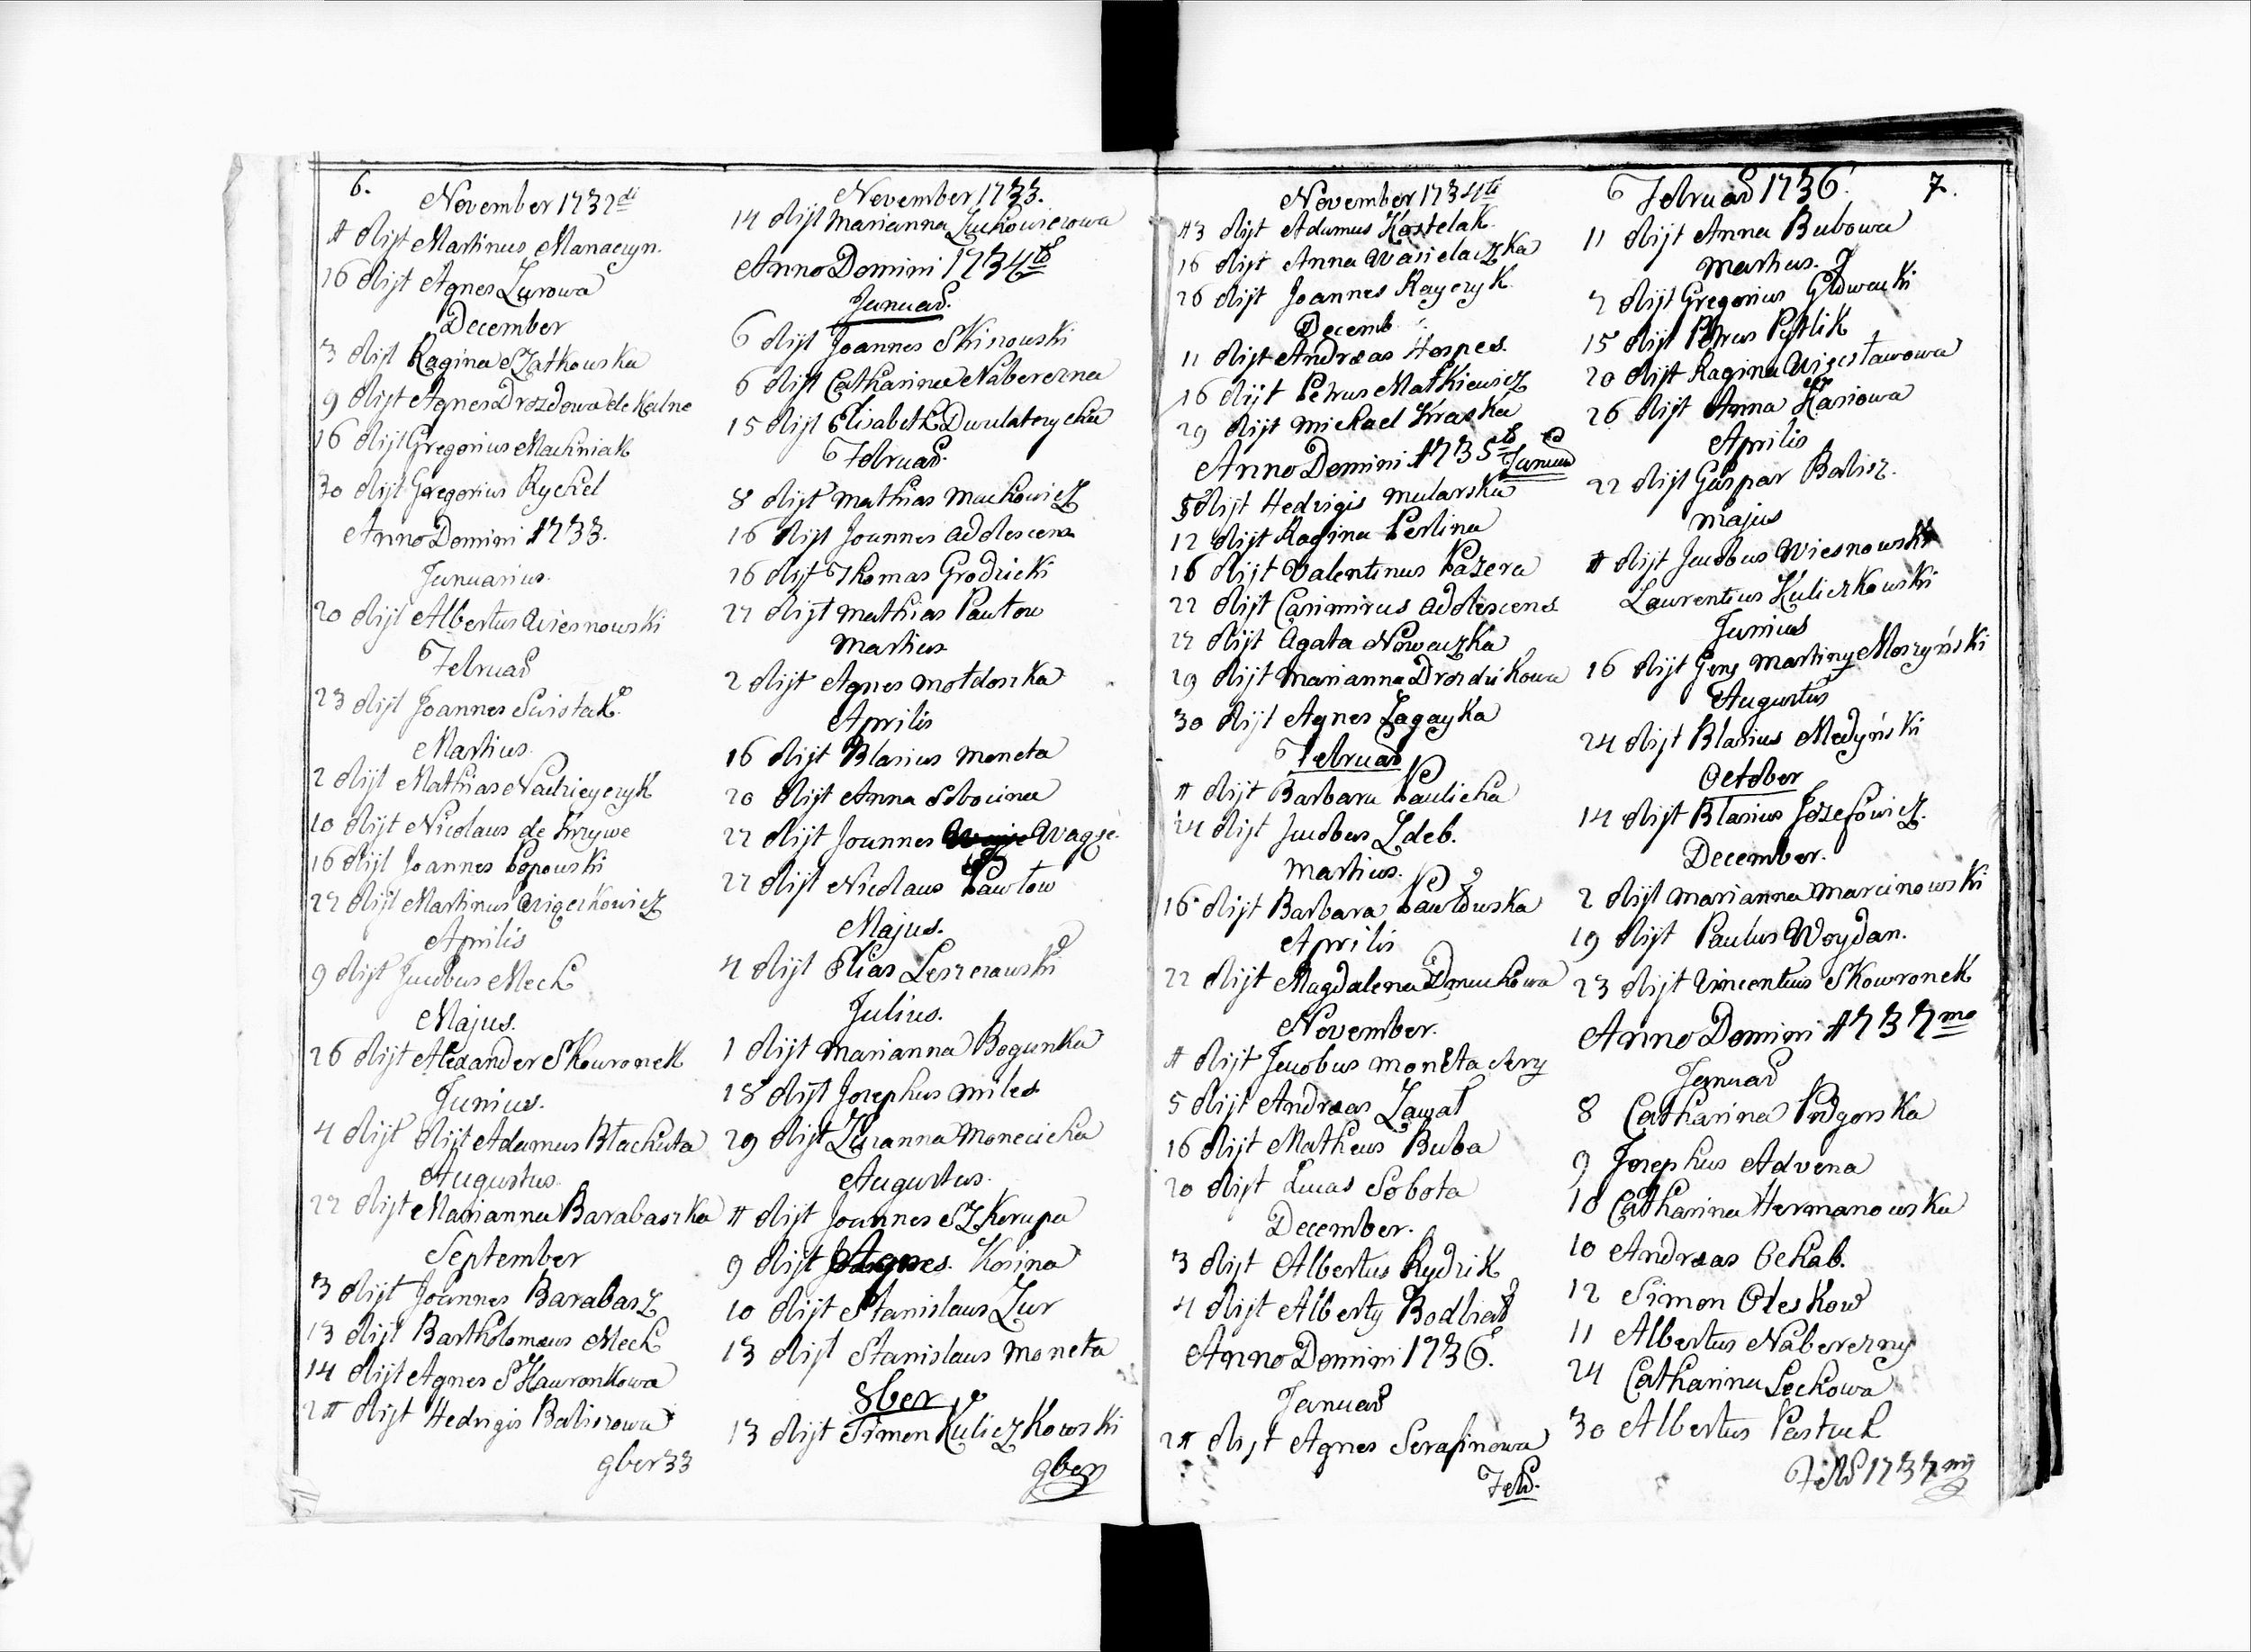 6.
November 1732di
1 Obijt Martinus Manaczyn.
16 Obijt Agnes Zurowa
December
3 Obijt Ragina Szatkowska
9 Obijt Agnes Drozdowa de Kalne
16 Obijt Gregorius Machniak
30 Obijt Gregorius Rychel
Anno Domini 1733.
Januarius.
20 Obijt Albertus Wiesnowski
Februar
23 Obijt Joannes Swistak
Martius.
2 Obijt Mathias
10 Obijt Nicolaus de Krzywe
16 Obijt Joannes Popowski
27 Obijt Martinus
Aprilis
9 Obijt Jacobus Mech
Majus.
26 Obijt Alexander Skowronek
Junius.
4 Obijt Obijt Adamus Blachuta
Augustus.
22 Obijt Marianna Barabaszka
September
3 Obijt Joannes Barabasz
13 Obijt Bartholomæus Mech
14 Obijt Agnes Skawronkowa
21 Obijt Hedvigis Baliczowa
9ber 33
November 1733.
14 Obijt Marianna Zuchowiczowa
Anno Domini 1734to
Januar.
6 Obijt Joannes Skinowski
6 Obijt Catharina Naberezna
15 Obijt Elisabeth
Februar.
8 Obijt Mathias Machowicz
16 Obijt Joannes adolescens
26 Obijt Thomas Grodzicki
27 Obijt Mathias Pawłow
Martius
2 Obijt Agnes Motdonka
Aprilis
16 Obijt Blasius Moneta
20 Obijt Anna Sobocina
27 Obijt Joannes
27 Obijt Nicolaus Pawłow
Majus.
4 Obijt Elias Leszczawski
Julius.
1 Obijt Marianna Bogunka
18 Obijt Josephus miles
29 Obijt Zuzanna Monecicha
Augustus.
11 Obijt Joannes Szkerupa
9 Obijt Agnes. Kosina
10 Obijt Stanislaus Zur
13 Obijt Stanislaus Moneta
8ber
13 Obijt Simon Kuliczkowski
9ber
November 1734to
13 Obijt Adamus Kostelak.
16 Obijt Anna Wasielaczka
26 Obijt Joannes Rayczyk.
Decemb
11 Obijt Andræas Hospes.
16 Obijt Petrus Matkiewicz
29 Obijt Michael Kraska
Anno Domini 1735to Januar
5 Obijt Hedvigis Mularska
12 Obijt Ragina Perlina
16 Obijt Valentinus Pazera
22 Obijt Casimirus adolescens
27 Obijt Agata Nowaczka
29 Obijt Marianna Drozdzikowa
30 Obijt Agnes Zagayka
Februar
11 Obijt Barbara Paulicha
24 Obijt Jacobus Zdeb.
Martius.
16 Obijt Barbara Pawłowska
Aprilis
22 Obijt Magdalena Dmuchowa
November.
11 Obijt Jacobus Moneta
5 Obijt Andræas
16 Obijt Matheus Buba
20 Obijt Lucas Sobota
December.
3 Obijt Albertus Rydzik
4 Obijt Alberty
Anno Domini 1736.
Januar
21 Obijt Agnes Serafinowa
Feb.
Februar 1736. 7.
11 Obijt Anna Bubowa
Martius.
7 Obijt Gregorius Głowacki
15 Obijt Petrus Pytlik
20 Obijt Ragina Więcsławowa
26 Obijt Anna Kasiowa
Aprilis
22 Obijt Gaspar Balicz.
Majus
11 Obijt Jacobus Wiesnowski
Laurentius Kuliczkowski
Junius
16 Obijt Gens Martiny Moszyński
Augustus
24 Obijt Blasius Medyński
October
14 Obijt Blasius Jozefowicz.
December.
2 Obijt Marianna Marcinowski
19 Obijt Paulus Woydan.
23 Obijt Vincentius Skowronek
Anno Domini 1737mo
Januar
8 Catharina Podgorska
9 Josephus Advena
10 Catharina Hermanowska
10 Andræas Ochab.
12 Simon Oleskow
11 Albertus Naberezny
24 Catharina Lechowa
30 Albertus Pastuch
Feb 1737mi